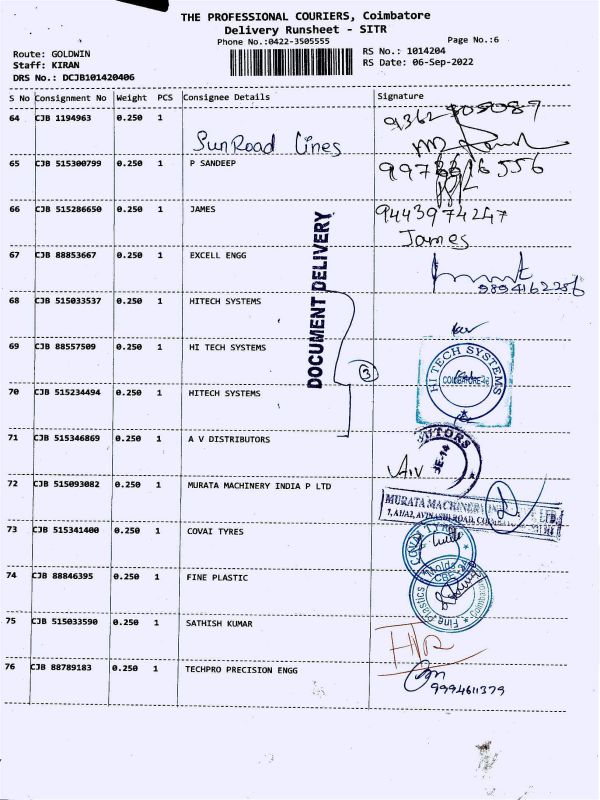 THE PROFESSIONAL COURIERS, Coimbatore
Delivery Runsheet - SITR
Phone No.:0422-3505555
Page No.:6
Route: GOLDWIN
RS No.: 1014204
Staff: KIRAN
RS Date: 06-Sep-2022
DRS No.: DCJB101420406
S No Consignment No Weight PCS Consignee Details Signature
64 CJB 1194963 0.250 1
Sun Road Lines
65 CJB 515300799 0.250 1 P SANDEEP
66 CJB 515286650 0.250 1 JAMES 9443974247
James
67 CJB 88853667 0.250 1 EXCELL ENGG
9894162256
68 CJB 515033537 0.250 1 HITECH SYSTEMS
DOCUMENT DELIVERY
69 CJB 88557509 0.250 1 HI TECH SYSTEMS
HI TECH SYSTEMS
COIMBATORE
3
70 CJB 515234494 0.250 1 HITECH SYSTEMS
71 CJB 515346869 0.250 1 A V DISTRIBUTORS
72 CJB 515093082 0.250 1 MURATA MACHINERY INDIA P LTD
MURATA MACHINERY
AVINASHI ROAD,
73 CJB 515341400 0.250 1 COVAI TYRES
COVAI TYRE
74 CJB 88846395 0.250 1 FINE PLASTIC
Fine Plastics
Coimbatore
75 CJB 515033590 0.250 1 SATHISH KUMAR
76 CJB 88789183 0.250 1 TECHPRO PRECISION ENGG
9994611379